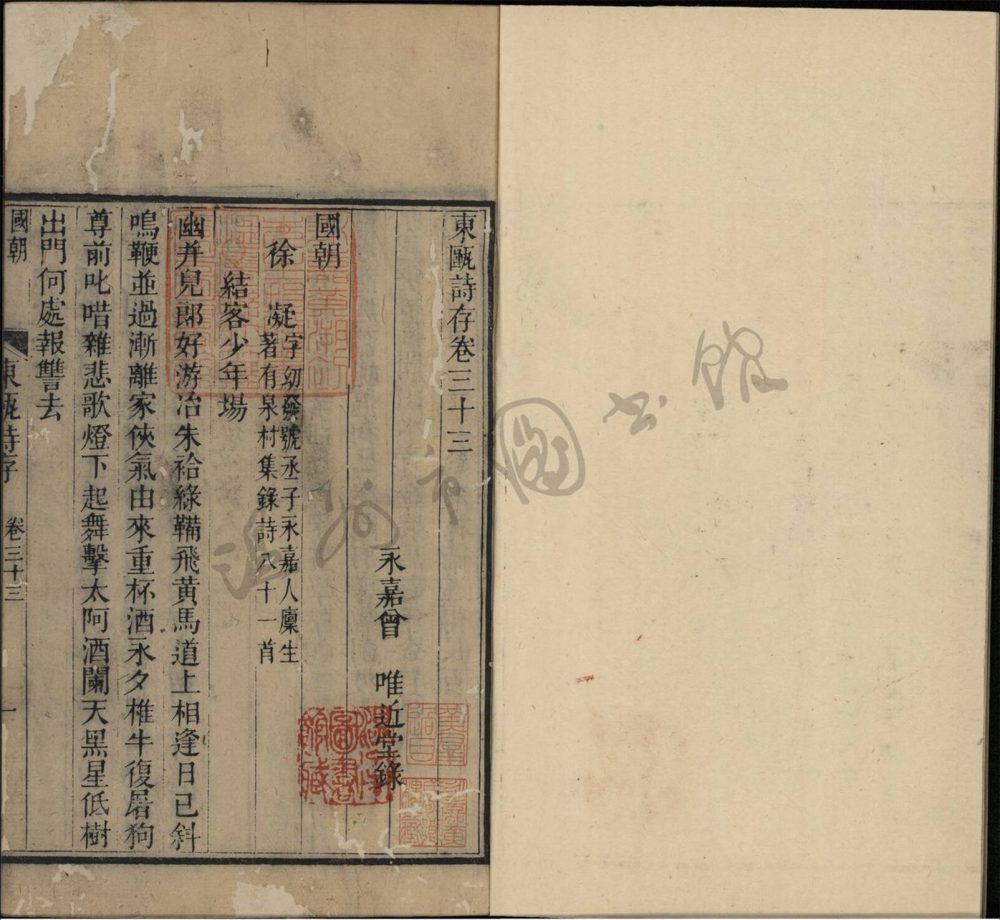 東甌詩存卷三十三
永嘉曾 唯近堂錄
國朝
徐 凝字幼發號丞子永嘉人廩生
著有泉村集錄詩八十一首
結客少年場
幽并兒郎好游冶朱袷綠鞲飛黃馬道上相逢日已斜
鳴鞭並過漸離家俠氣由來重杯酒永夕椎牛復屠狗
尊前叱喑雜悲歌燈下起舞擊太阿酒闌天黑星低樹
出門何處報讐去
國朝
東甌詩存 卷三十三 一
溫州市圖書館
溫州市圖書館藏